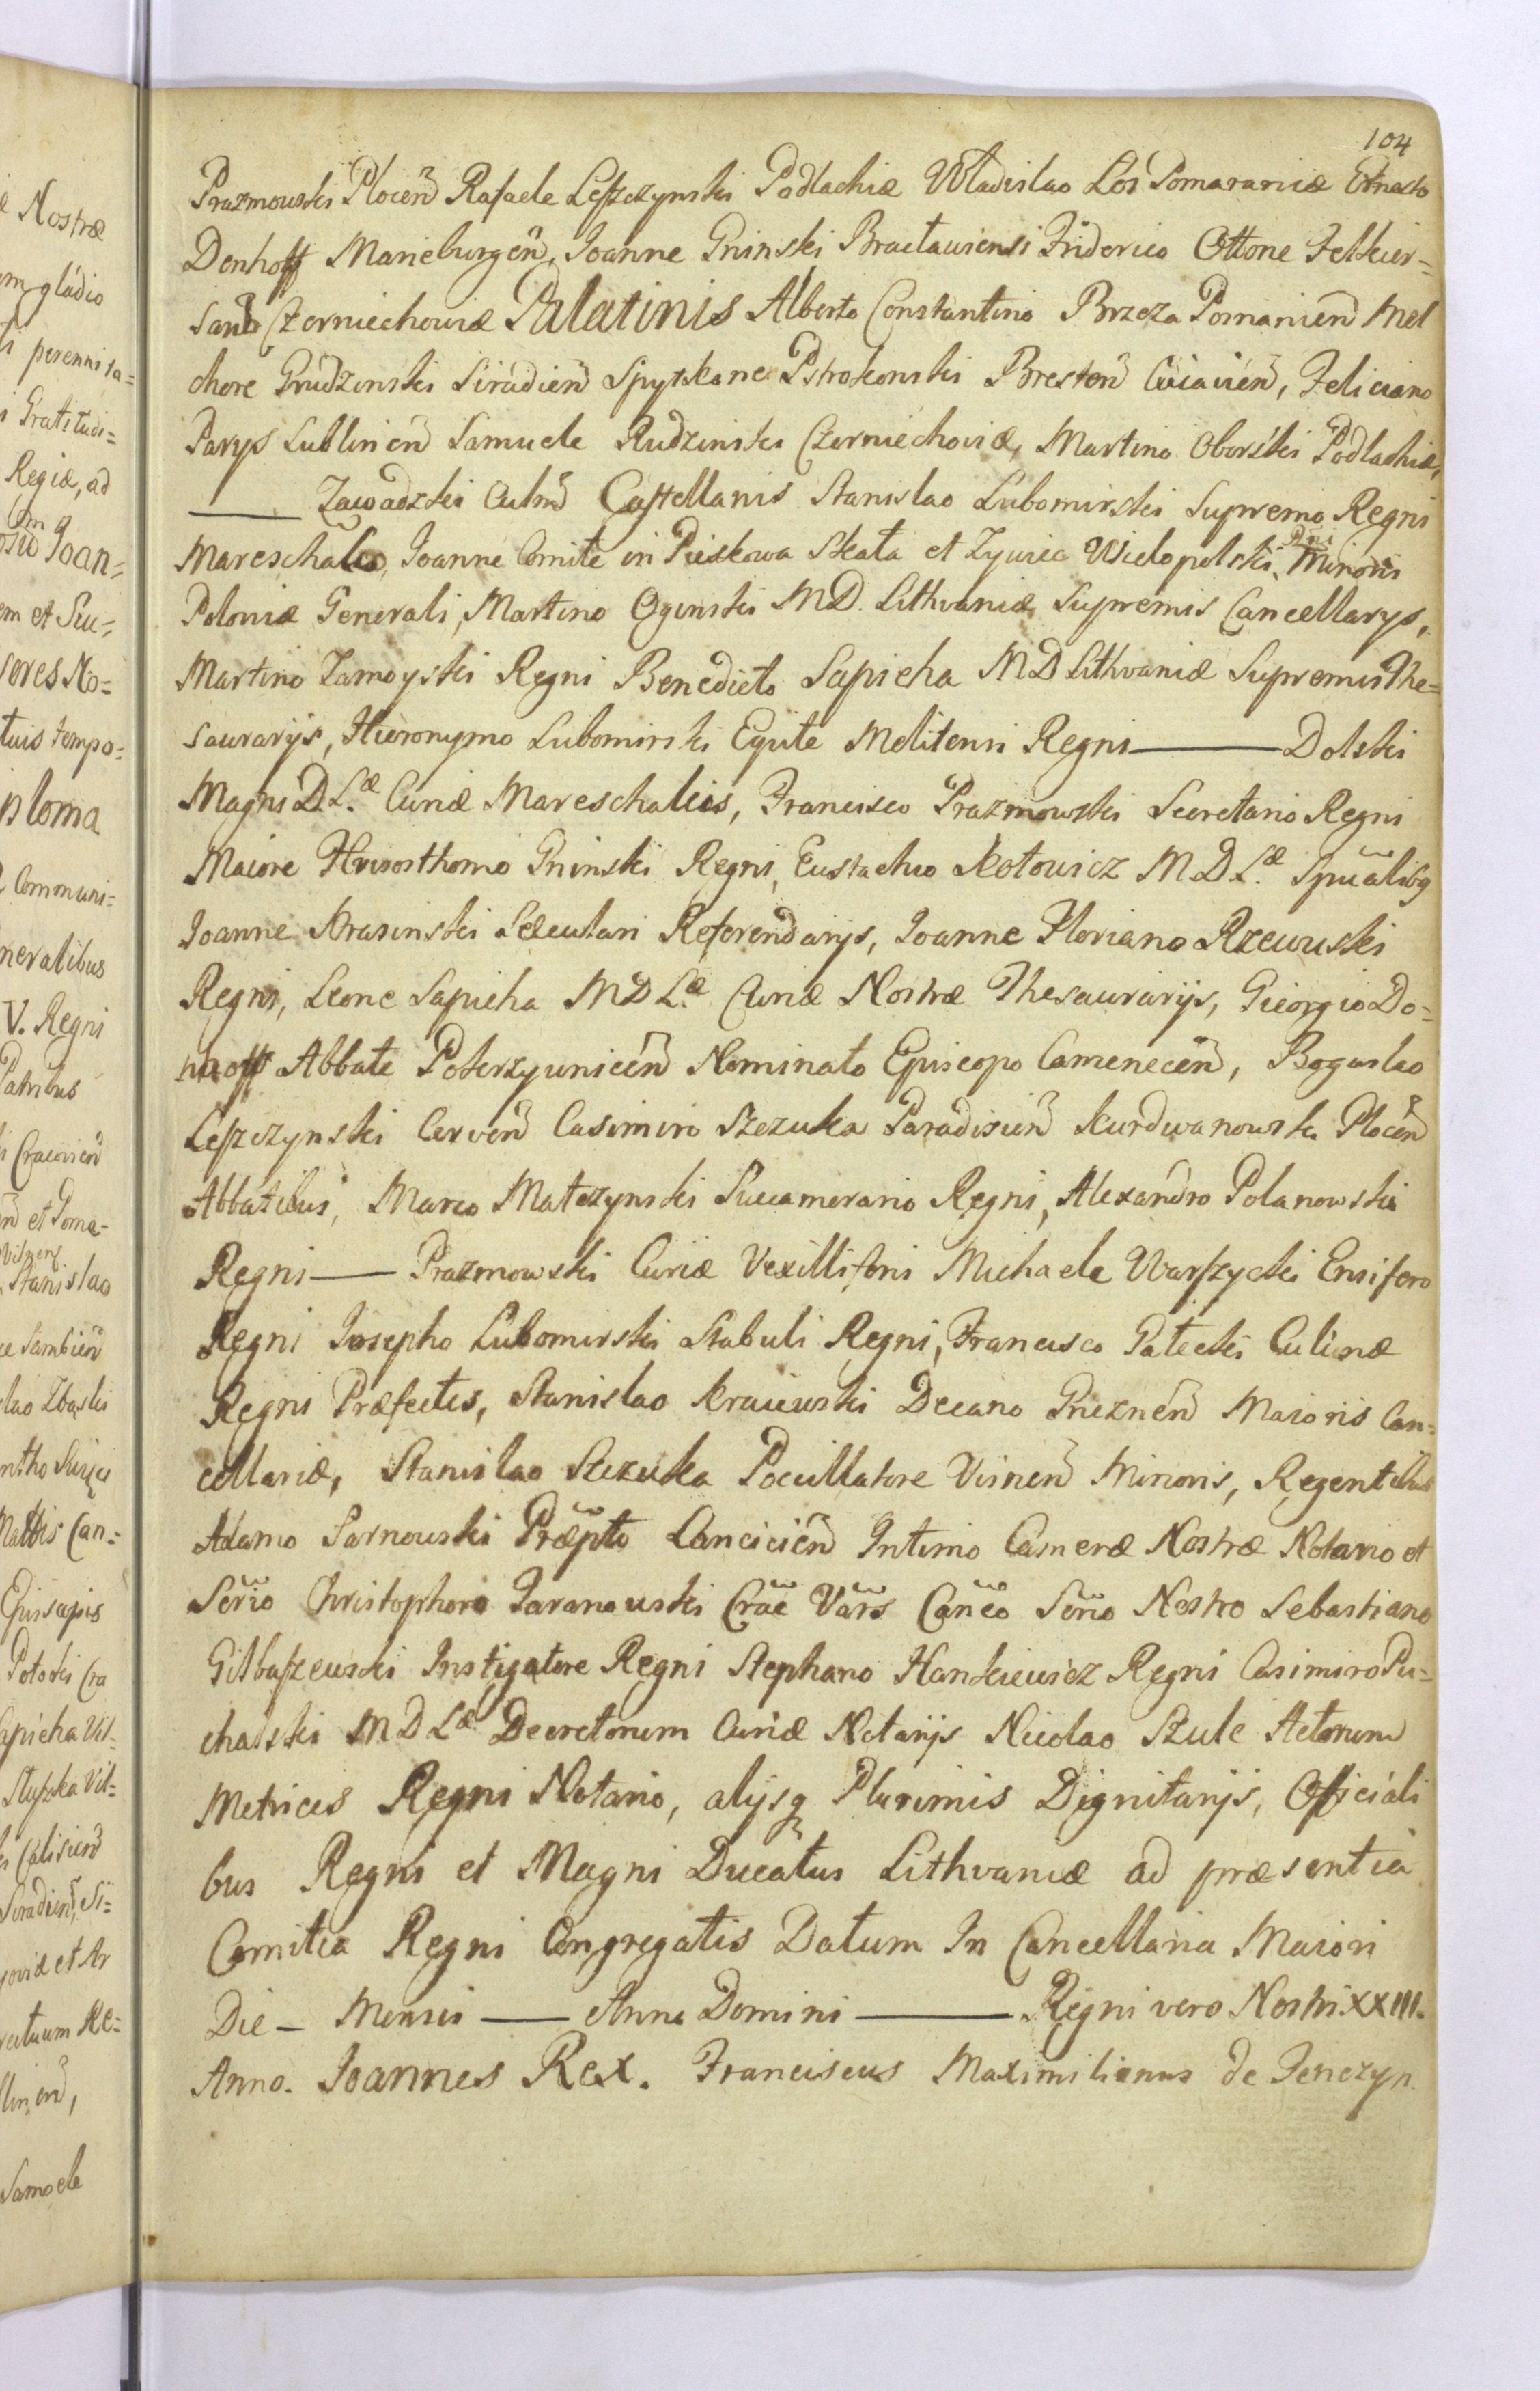 104
Prazmowski Plocen̄ Rafaele Leszczynski Podlachiæ Wladislao Los Pomaraniæ Ernesto
Denhoff Marieburgen̄, Joanne Gninski Braclaviensi Friderico Ottone Felkier=
samb Czerniechoviæ Palatinis Alberto Constantino Brzeza Posnanien̄ Mel
chore Grudzinski Siradien̄ Spytkone Pstrokonski Bresten̄ Cuiavien̄, Feliciano
Parys Lublinen̄ Samuele Rudzinski Czerniechoviæ, Martino Oborski Podlachiæ,
—— Zawadzki Culm̄ Castellanis Stanislao Lubomirski Supremo Regni
Mareschalco, Joanne Comite in Pieskowa Skała et Zywiec Wielopolski, Pn̄i Minoris
Poloniæ Generali, Martino Oginski M.D. Lithvaniæ Supremis Cancellarys,
Martino Zamoyski Regni Benedicto Sapieha M D Lithvaniæ Supremis The=
saurarijs, Hieronymo Lubomirski Equite Melitensi Regni —— Dolski
Magni D L.æ Curiæ Mareschalcis, Francisco Prazmowski Secretario Regni
Maiore Hrisosthomo Gninski Regni, Eustachio Kotowicz M D L.æ Spūalibq
Joanne Krasinski Sæculari Referendarijs, Joanne Floriano Rzewuski
Regni, Leone Sapieha M D L.æ Curiæ Nostræ Thesaurarijs, Gieorgio Do=
nhoff Abbate Poterzynicen̄ Nominato Episcopo Camenecen̄, Boguslao
Leszczynski Cerven̄ Casimiro Szczuka Paradisien̄ Kurdwanowski Plocen̄
Abbatibus, Marco Matczynski Succamerario Regni, Alexandro Polanowski
Regni —— Prazmowski Curiæ Vexilliferis Michaele Warszycki Ensifero
Regni Josepho Lubomirski Stabuli Regni, Francisco Gałecki Culinæ
Regni Præfectis, Stanislao Kraiewski Decano Gneznen̄ Maioris Can=
cellariæ, Stanislao Szczuka Pocillatore Visnen̄ Minoris, Regentibus
Adamo Sarnowski Præpto Lancicien̄ Intimo Cameræ Nostræ Notario et
Serīo Christophoro Taranowski Crac̄ Vars̄ Canc̄o Serīo Nostro Sebastiano
Gilbaszewski Instigatore Regni Stephano Hankiewicz Regni Casimiro Pu=
chalski M D Læ Decretorum Curiæ Notarijs Nicolao Szulc Actorum
Metrices Regni Notario, alysq Plurimis Dignitarijs, Officiali
bus Regni et Magni Ducatus Lithvaniæ ad præsentia
Comitia Regni Congregatis Datum In Cancellaria Maiori
Die — Mensis —— Anno Domini —— Regni vero Nostri XXIII.
Anno. Joannes Rex. Franciscus Maximilianus de Tenczyn